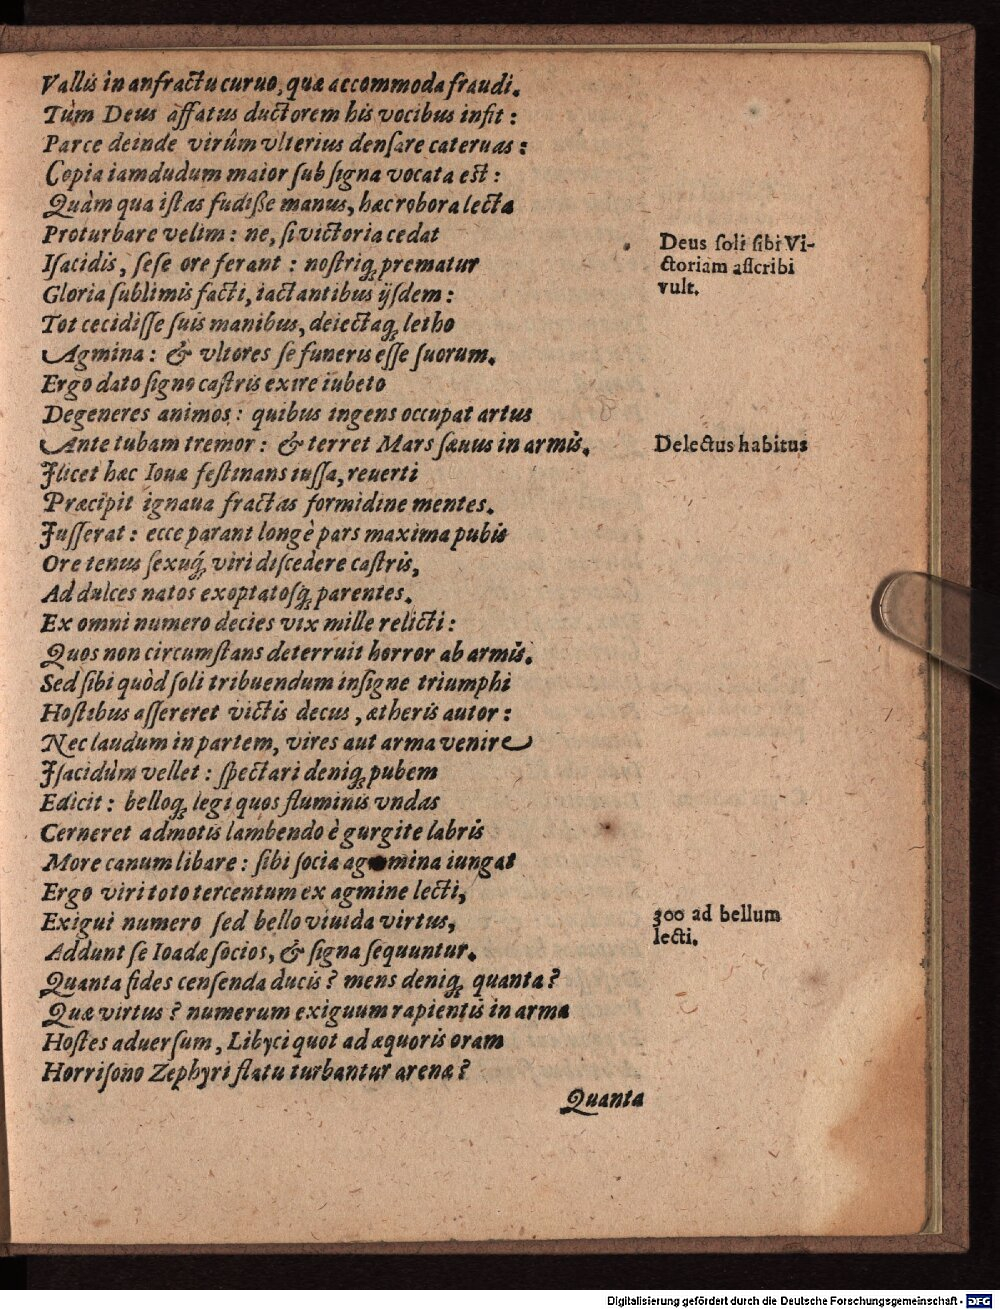 Vallis in anfractu curuo, quæ accommoda fraudi.
Tùm Deus affatus ductorem his vocibus infit :
Parce deinde virûm vlterius densare cateruas :
Copia iamdudum maior sub signa vocata est :
Quàm qua istas fudiße manus, hæc robora lecta
Proturbare velim : ne, si victoria cedat
Deus soli sibi Vi-
Isacidis, sese ore ferant : nostriq; prematur
ctoriam asscribi
Gloria sublimis facti, iactantibus ijsdem :
vult.
Tot cecidisse suis manibus, deiectaq; letho
Agmina : & vltores se funeris esse suorum.
Ergo dato signo castris exire iubeto
Degeneres animos : quibus ingens occupat artus
Ante tubam tremor : & terret Mars sæuus in armis.
Delectus habitus
Ilicet hæc Iouæ festinans iussa, reuerti
Præcipit ignaua fractas formidine mentes.
Iusserat : ecce parant longè pars maxima pubis
Ore tenus sexuq́; viri discedere castris,
Ad dulces natos exoptatosq́; parentes.
Ex omni numero decies vix mille relicti :
Quos non circumstans deterruit horror ab armis.
Sed sibi quòd soli tribuendum insigne triumphi
Hostibus assereret victis decus, ætheris autor :
Nec laudum in partem, vires aut arma venire
Isacidùm vellet : spectari deniq; pubem
Edicit : belloq; legi quos fluminis vndas
Cerneret admotis lambendo è gurgite labris
More canum libare : sibi socia agmina iungat
Ergo viri toto tercentum ex agmine lecti,
Exigui numero sed bello viuida virtus,
300 ad bellum
lecti.
Addunt se Ioadæ socios, & signa sequuntur.
Quanta fides censenda ducis ? mens deniq; quanta ?
Quæ virtus ? numerum exiguum rapientis in arma
Hostes aduersum, Libyci quot ad æquoris oram
Horrisono Zephyri flatu turbantur arenæ ?
Quanta
Digitalisierung gefördert durch die Deutsche Forschungsgemeinschaft - DFG